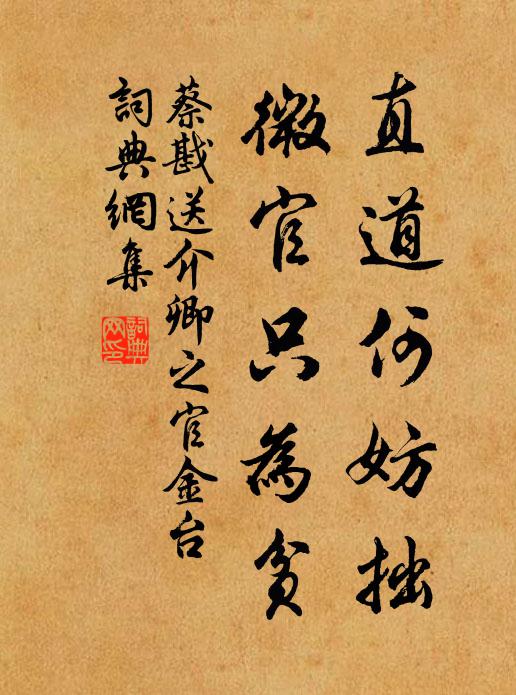 直道何妨拙
微官只為貧
蔡戡送介卿之官金台
詞典網集
詞典網印